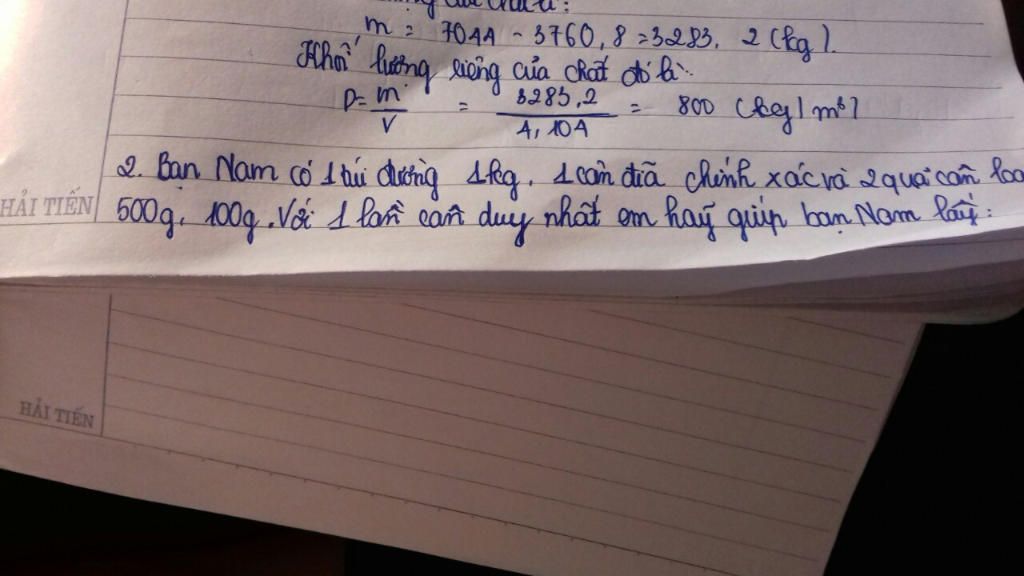 m = 7044 - 3760,8 = 3283, 2 (kg).
Khối lượng riêng của chất đó là:
D = m/V = 3283,2 / 4,104 = 800 (kg/m³)
2. Bạn Nam có 1 túi đường 1kg, 1 cân đĩa chính xác và 2 quả cân loạ
HẢI TIẾN
500g, 100g. Với 1 lần cân duy nhất em hãy giúp bạn Nam lấy:
HẢI TIẾN